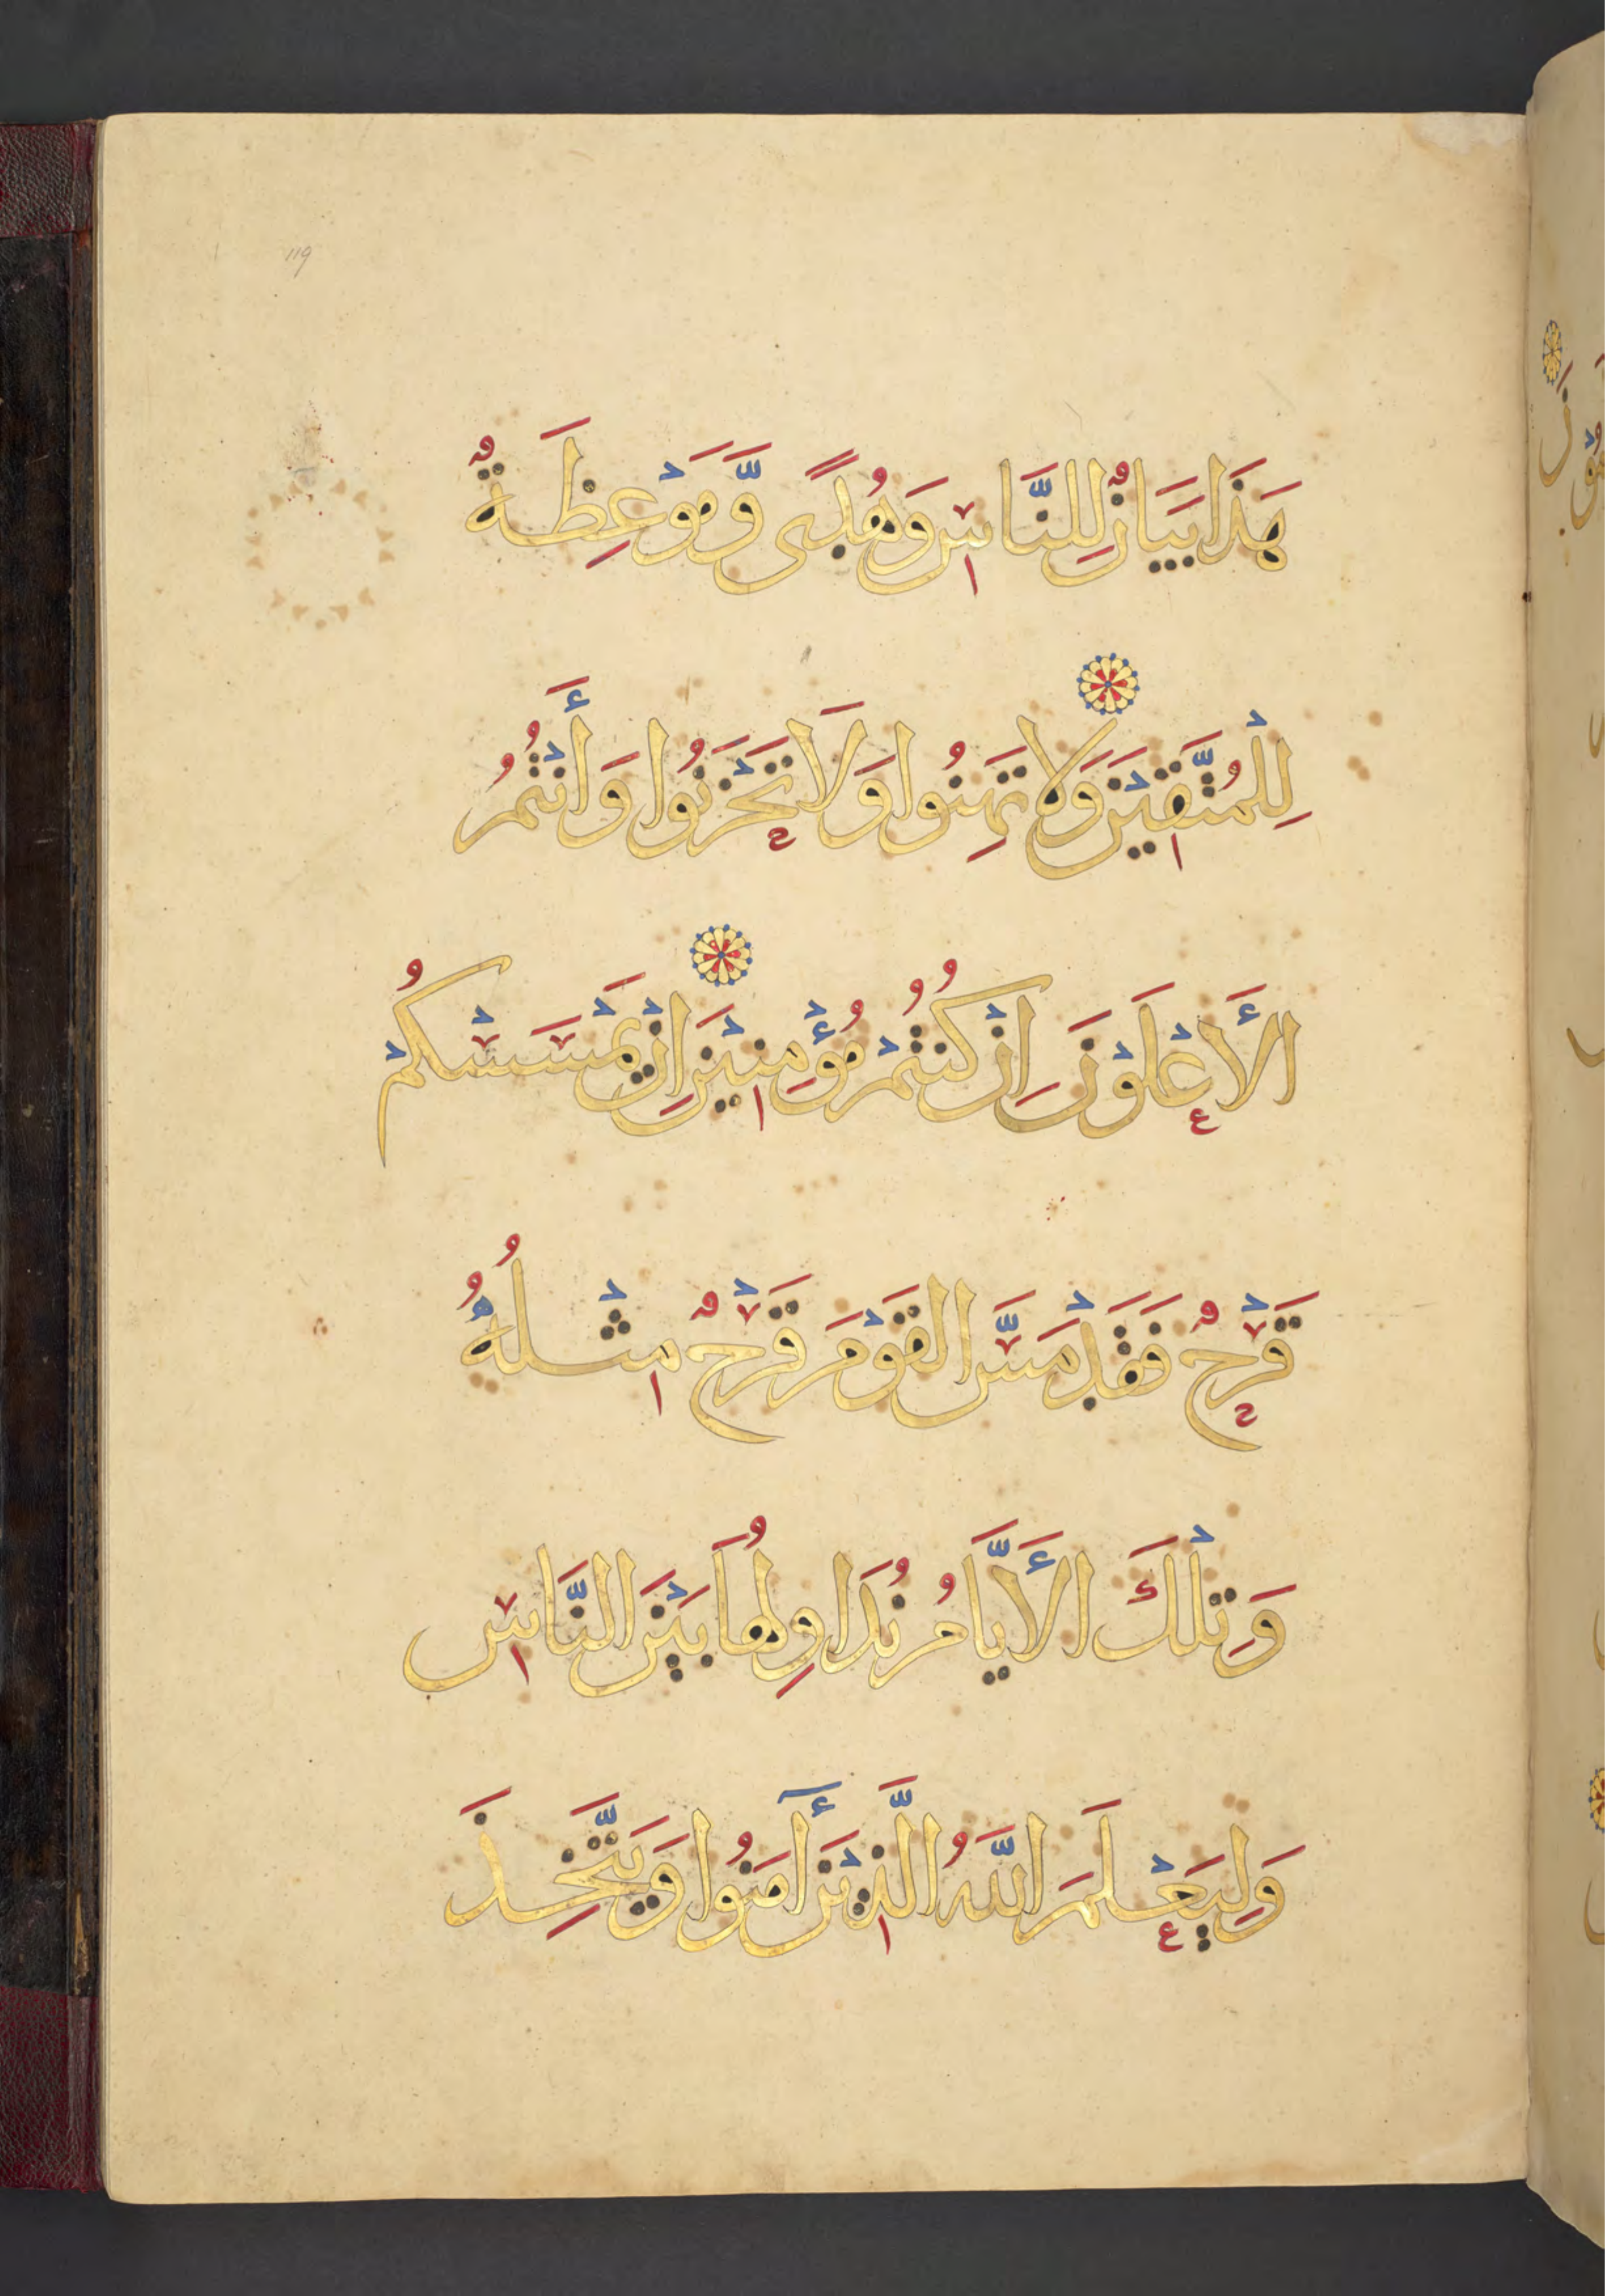 119
هَذَا بَيَانٌ لِلنَّاسِ وَهُدًى وَّمَوْعِظَةٌ
لِلْمُتَّقِيْنَ وَلَا تَهِنُوا وَلَا تَحْزَنُوا وَأَنْتُمُ
الأَعْلَوْنَ اِنْ كُنْتُمْ مُؤْمِنِيْنَ اِنْ يَمْسَسْكُمْ
قَرْحٌ فَقَدْ مَسَّ الْقَوْمَ قَرْحٌ مِثْلُهُ
وَتِلْكَ الأَيَّامُ نُدَاوِلُهَا بَيْنَ النَّاسِ
وَلِيَعْلَمَ اللَّهُ الَّذِيْنَ أٓمَنُوا وَيَتَّخِذَ